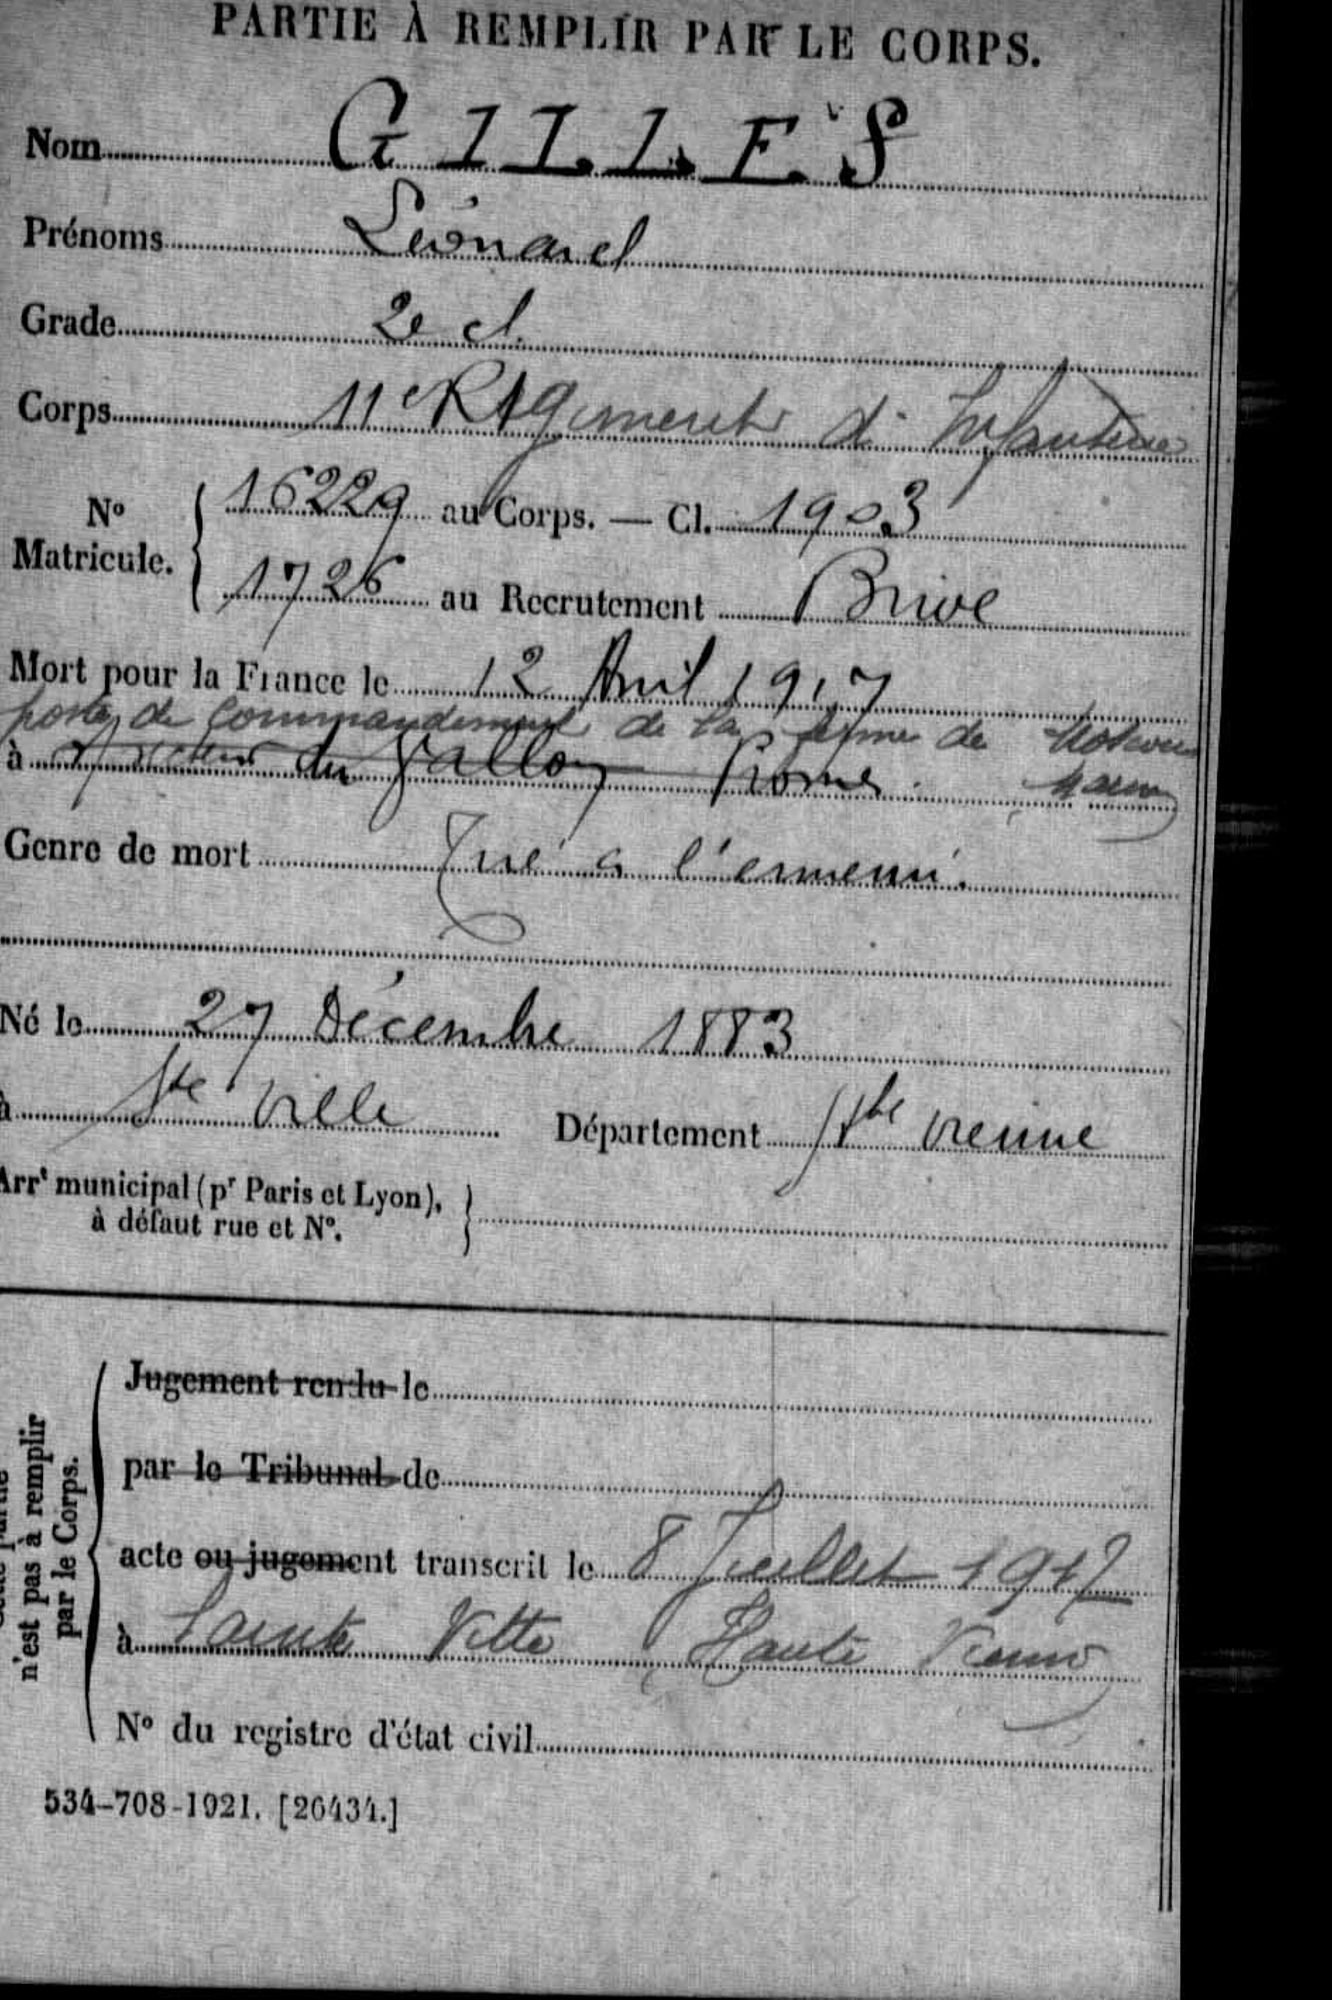 PARTIE À REMPLIR PAR LE CORPS.
Nom GILLES
Prénoms Léonard
Grade 2e cl.
Corps 11e Régiment d' Infanterie
No Matricule. 16229 au Corps. — Cl. 1903
1726 au Recrutement Brive
Mort pour la France le 12 Avril 1917
poste de commandement de la ferme de
à du Vallon Marne
Genre de mort Tué à l'ennemi.
Né le 27 Décembre 1883
à Ste Ville Département Hte Vienne
Arrt municipal (pr Paris et Lyon),
à défaut rue et No.
n'est pas à remplir
par le Corps.
Jugement rendu le
par le Tribunal de
acte ou jugement transcrit le 8 Juillet 1917
à Sainte Vitte Haute Vienne
No du registre d'état civil
534-708-1921. [26434.]